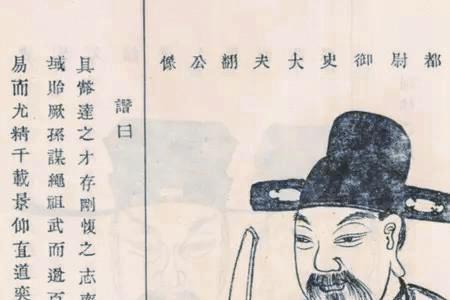 都尉御史大夫翻公像
曰
具達之才存剛愎之志
域貽厥孫謀繩祖武而
易而尤精千載景仰直道奕